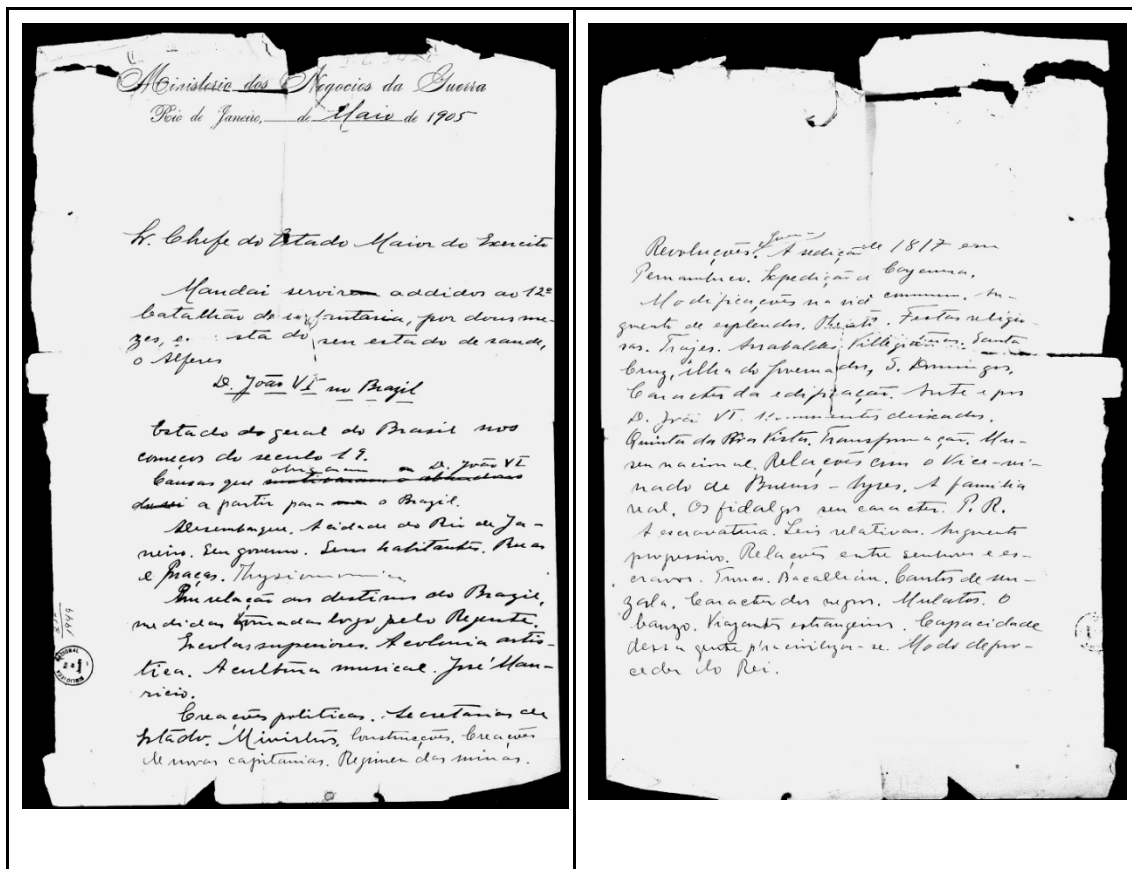 Ministerio dos Negocios da Guerra
Rio de Janeiro, de Maio de 1905
Sr. Chefe do Estado Maior do Exercito
Mandai servirem addidos ao 12º
batalhão de infantaria, por dous me-
zes, e sta do seu estado de saude,
o Alferes
D. João VI no Brazil
Estado do geral do Brasil nos
começos do seculo 19.
obrigaram a D. João VI
Causas que motivaram o
a partir para o Brazil.
Desembarque. A cidade do Rio de Ja-
neiro. Seu governo. Seus habitantes. Ruas
e praças. Physionomia
Em relação aos destinos do Brazil,
medidas tomadas logo pelo Regente.
Escolas superiores. A colonia artis-
tica. A cultura musical. José Mau-
ricio.
Creações politicas. Secretarias de
Estado. Ministros. Construcções. Creações
de novas capitanias. Regimen das minas.
1949
Revoluções. A sedição de 1817 em
Pernambuco. Expedição a Cayenna.
Modificações na vida commum. Au-
gmento de esplendor. Festas religio-
sas. Trajes. Arrabaldes. Villegiaturas. Santa
Cruz, ilha do Governador, S. Domingos.
Caracter da edificação. Ante e pos
D. João VI. Monumentos deixados.
Quinta da Boa Vista. Transformação. Mu-
seu nacional. Relações com o Vice-rei-
nado de Buenos-Ayres. A familia
real. Os fidalgos seu caracter. P. R.
A escravatura. Leis relativas. Augmento
progressivo. Relações entre senhores e es-
cravos. Tronco. Bacalhau. Cantos de sen-
zala. Caracter dos negros. Mulatos. O
banzo. Viajantes estrangeiros. Capacidade
dessa gente p'ra civilizar-se. Modo de pro-
ceder do Rei.